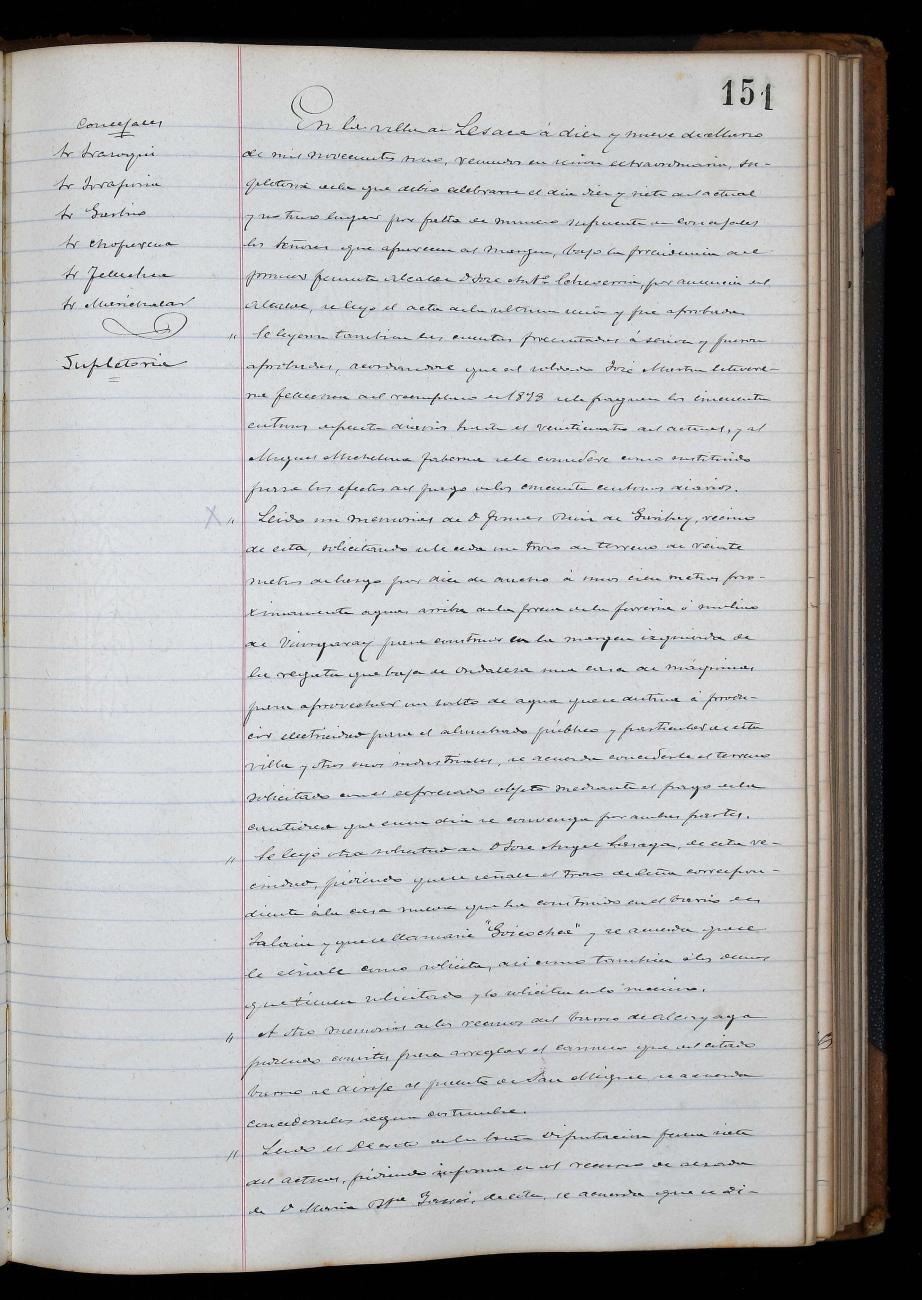 151
Concejales
Sr Irazoqui
Sr
Sr
Sr Choperena
Sr Telechea
Sr Marichalar
Supletoria
En la villa de Lesaca á diez y nueve de
de mil novecientos uno, reunidos en sesión extraordinaria, su-
pletoria de la que debió celebrarse el dia diez y siete del actual
y no tuvo lugar por falta de número suficiente de concejales
los Señores que aparecen al margen, bajo la presidencia del
primer teniente Alcalde D José Antº Echeverria, por ausencia del
Alcalde, se leyó el acta de la ultima sesión y fue aprobada
" Se leyeron tambien las cuentas presentadas á sesión y fueron
aprobadas, acordandose que al soldado José Martin
Telechea del reemplazo de 1873 se le paguen los cincuenta
centimos diarios hasta el veinticuatro del actual, y al
Miguel Michelena Taberna se le considere como sustituido
para los efectos del pago de los cincuenta centimos diarios.
X " Leido un memorial de D Tomas Ruiz de, vecino
de esta, solicitando se le ceda un trozo de terreno de veinte
metros de largo por diez de ancho á unos cien metros pro-
ximamente aguas arriba de la presa de la ferreria ó molino
de para construir en la margen izquierda de
la regata que baja de Endalaza una casa de máquinas
para aprovechar un salto de agua que se destina á produ-
cir electricidad para el alumbrado público y particular de esta
villa y otros usos industriales, se acuerda concederle el terreno
solicitado con el expresado objeto mediante el pago de la
cantidad que en su dia se convenga por ambas partes.
" Se leyó otra solicitud de D José Angel, de esta ve-
cindad, pidiendo que se señale el trozo de leña correspon-
diente á la casa nueva que ha construido en el barrio de
Zalain y que se llamaria "Goicochea" y se acuerda que se
le señale como solicita, asi como tambien á los demas
que tienen solicitado y lo soliciten en lo sucesivo.
" A otro memorial de los vecinos del barrio de Alcayaga
pidiendo para arreglar el camino que del citado
barrio se dirije al puente de San Miguel se acuerda
concederles segun costumbre.
" Leido el Decreto de la Excma Diputación fecha siete
del actual, pidiendo informe en el recurso de alzada
de Dª Maria, de esta, se acuerda que se di-